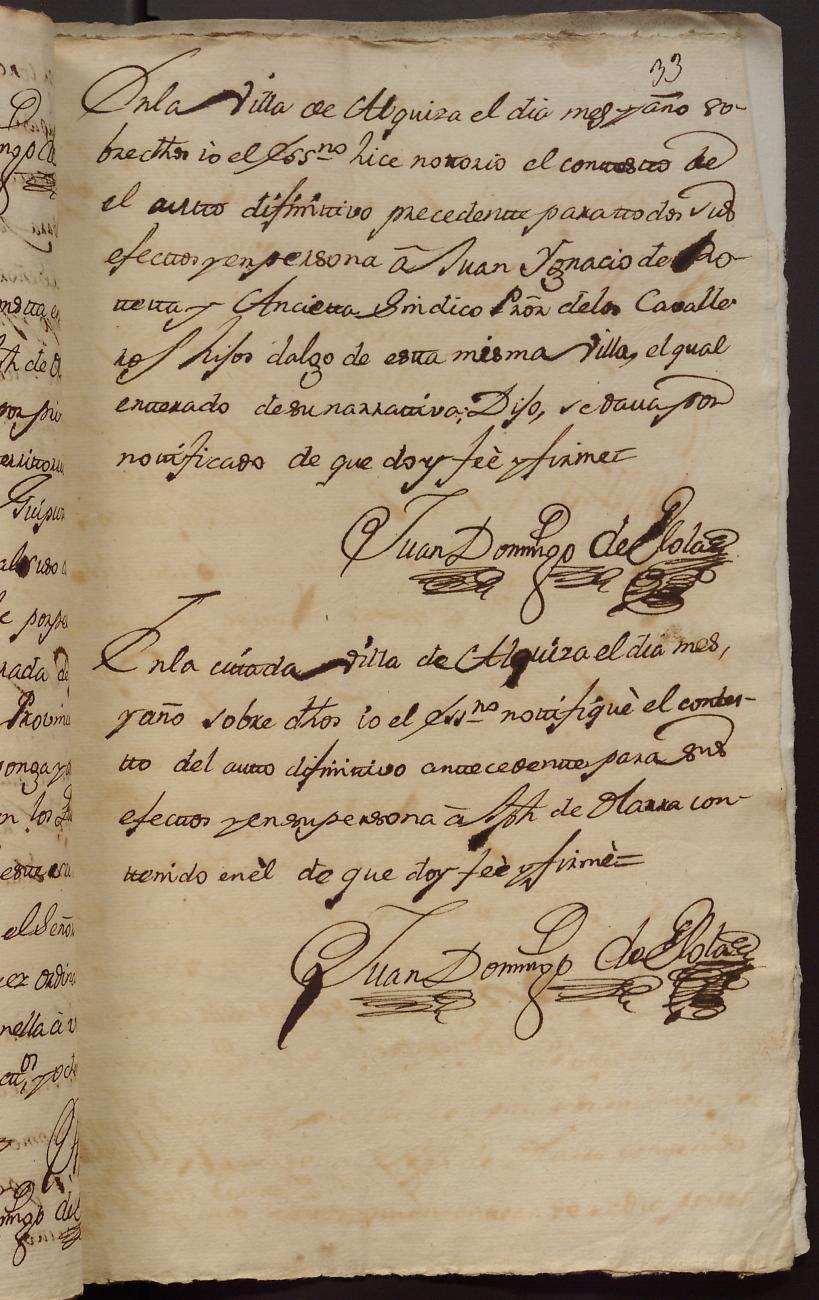 33
Enla Villa de Alquiza el dia mes y año so-
bredhos io el Essno hice notorio el contestto de
el autto difinitivo precedentte para ttodos sus
efecttos y en persona â Juan Ygnacio de Ro-
ttetta y Ancietta Sindico Pror delos Cavalle-
ros hijos dalgo de estta misma Villa, el qual
entterado desu narrattiva, Dijo, se dava por
nottificado de que doy feè y firme=
Juan Domingo de Elola
Enla cittada Villa de Alquiza el dia mes,
y año sobre dhos io el Essno nottifiquè el conttes-
tto del autto difinitivo anttecedentte para sus
efecttos y en su persona â Jph de Olarra con-
ttenido enèl de que doy feè y firmè=
Juan Domingo de Elola